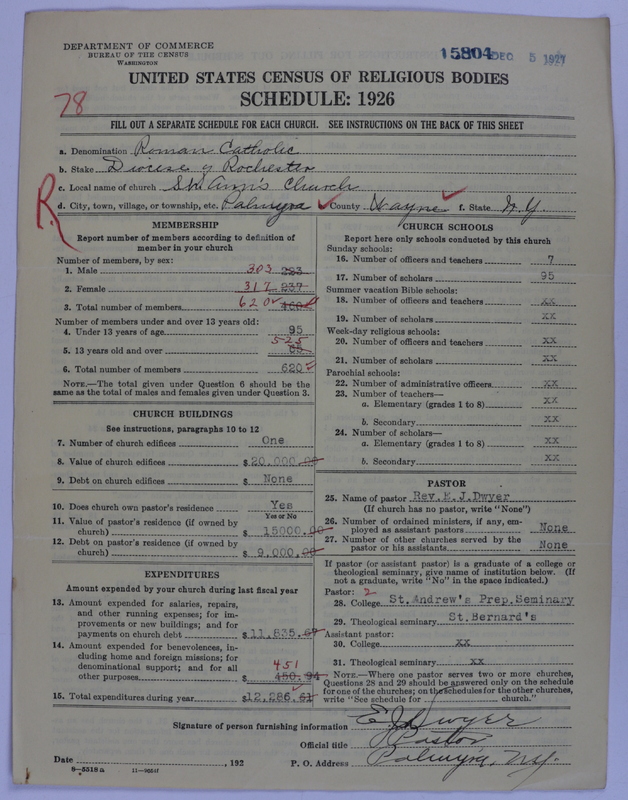 DEPARTMENT OF COMMERCE
BUREAU OF THE CENSUS
WASHINGTON
15804 DEC 5 1927
UNITED STATES CENSUS OF RELIGIOUS BODIES
SCHEDULE: 1926
78
FILL OUT A SEPARATE SCHEDULE FOR EACH CHURCH. SEE INSTRUCTIONS ON THE BACK OF THIS SHEET
a. Denomination Roman Catholic
b. Stake Diocese of Rochester
c. Local name of church St. Ann's Church
R
d. City, town, village, or township, etc. Palmyra County Wayne f. State N.Y
MEMBERSHIP
Report number of members according to definition of
member in your church
Number of members, by sex:
1. Male 303 223
2. Female 317 237
3. Total number of members 620 460
Number of members under and over 13 years old:
4. Under 13 years of age 95
5. 13 years old and over 525 65
6. Total number of members 620
NOTE.—The total given under Question 6 should be the
same as the total of males and females given under Question 3.
CHURCH BUILDINGS
See instructions, paragraphs 10 to 12
7. Number of church edifices One
8. Value of church edifices $20.000.00
9. Debt on church edifices $ None
10. Does church own pastor's residence Yes
Yes or No
11. Value of pastor's residence (if owned by
church) $ 15000.00
12. Debt on pastor's residence (if owned by
church) $ 9.000.00
EXPENDITURES
Amount expended by your church during last fiscal year
13. Amount expended for salaries, repairs,
and other running expenses; for im-
provements or new buildings; and for
payments on church debt $11,835.67
14. Amount expended for benevolences, in-
cluding home and foreign missions; for
denominational support; and for all
other purposes $ 451 450.94
15. Total expenditures during year $12,286.61
CHURCH SCHOOLS
Report here only schools conducted by this church
Sunday schools:
16. Number of officers and teachers 7
17. Number of scholars 95
Summer vacation Bible schools:
18. Number of officers and teachers xx
19. Number of scholars xx
Week-day religious schools:
20. Number of officers and teachers xx
21. Number of scholars xx
Parochial schools:
22. Number of administrative officers xx
23. Number of teachers—
a. Elementary (grades 1 to 8) xx
b. Secondary xx
24. Number of scholars—
a. Elementary (grades 1 to 8) xx
b. Secondary xx
PASTOR
25. Name of pastor Rev. E.J.Dwyer
(If church has no pastor, write "None")
26. Number of ordained ministers, if any, em-
ployed as assistant pastors None
27. Number of other churches served by the
pastor or his assistants None
If pastor (or assistant pastor) is a graduate of a college or
theological seminary, give name of institution below. (If
not a graduate, write "No" in the space indicated.)
Pastor: 2
28. College St.Andrew's Prep.Seminary
29. Theological seminary St.Bernard's
Assistant pastor:
30. College xx
31. Theological seminary xx
NOTE.—Where one pastor serves two or more churches,
Questions 28 and 29 should be answered only on the schedule
for one of the churches; on the schedules for the other churches,
write "See schedule for church."
Signature of person furnishing information E J Dwyer
Official title Pastor
Date , 192 P. O. Address Palmyra, N.Y.
8-5518a 11-9651f